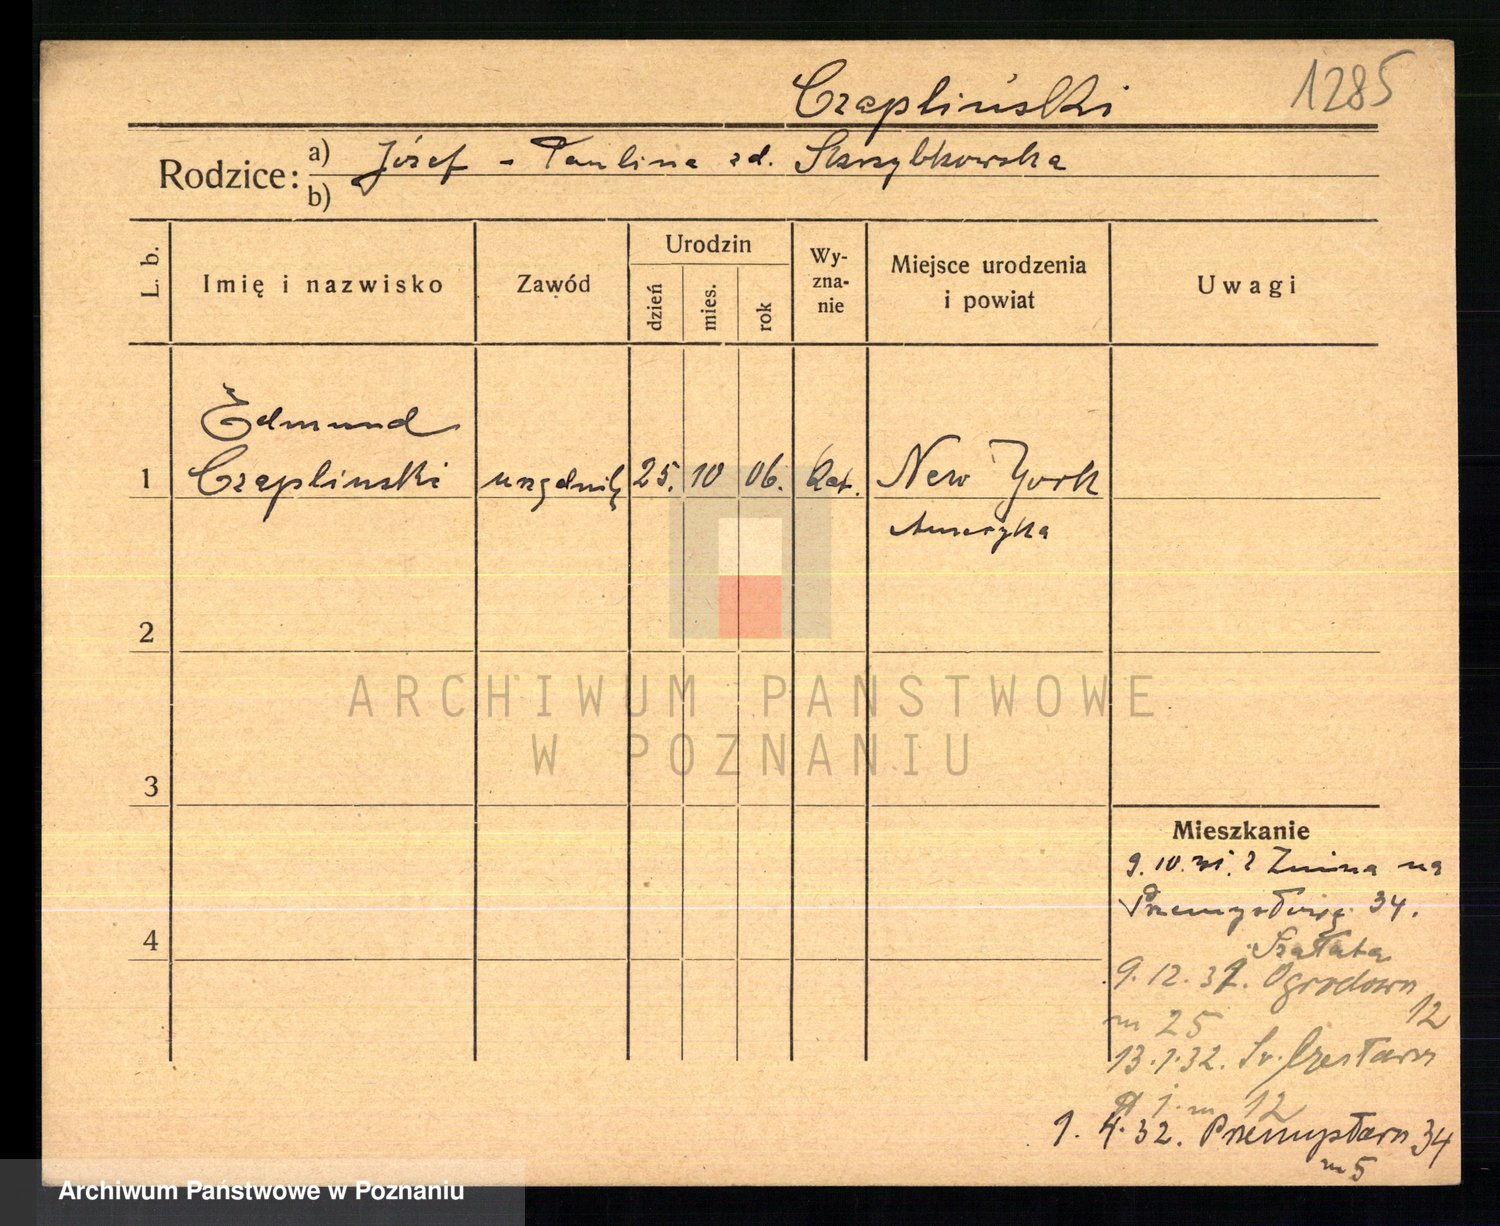 Czapliński
1285
Rodzice: a) Józef - Paulina zd. Skrzybkowska
b)
L. b.
Imię i nazwisko
Zawód
Urodzin
dzień
mies.
rok
Wy-
zna-
nie
Miejsce urodzenia
i powiat
Uwagi
Edmund
1 Czapliński urzędnik 25. 10 06. kat. New York
Ameryka
2
ARCHIWUM PAŃSTWOWE
W POZNANIU
3
Mieszkanie
9.10. 31. z Żnina na
Przemysłową 34.
4
9.12.31. Ogrodowa
12
m 25
13.1.32. Św. Czesława
1. m 12
1. 4. 32. Przemysłowa 34
m 5
Archiwum Państwowe w Poznaniu